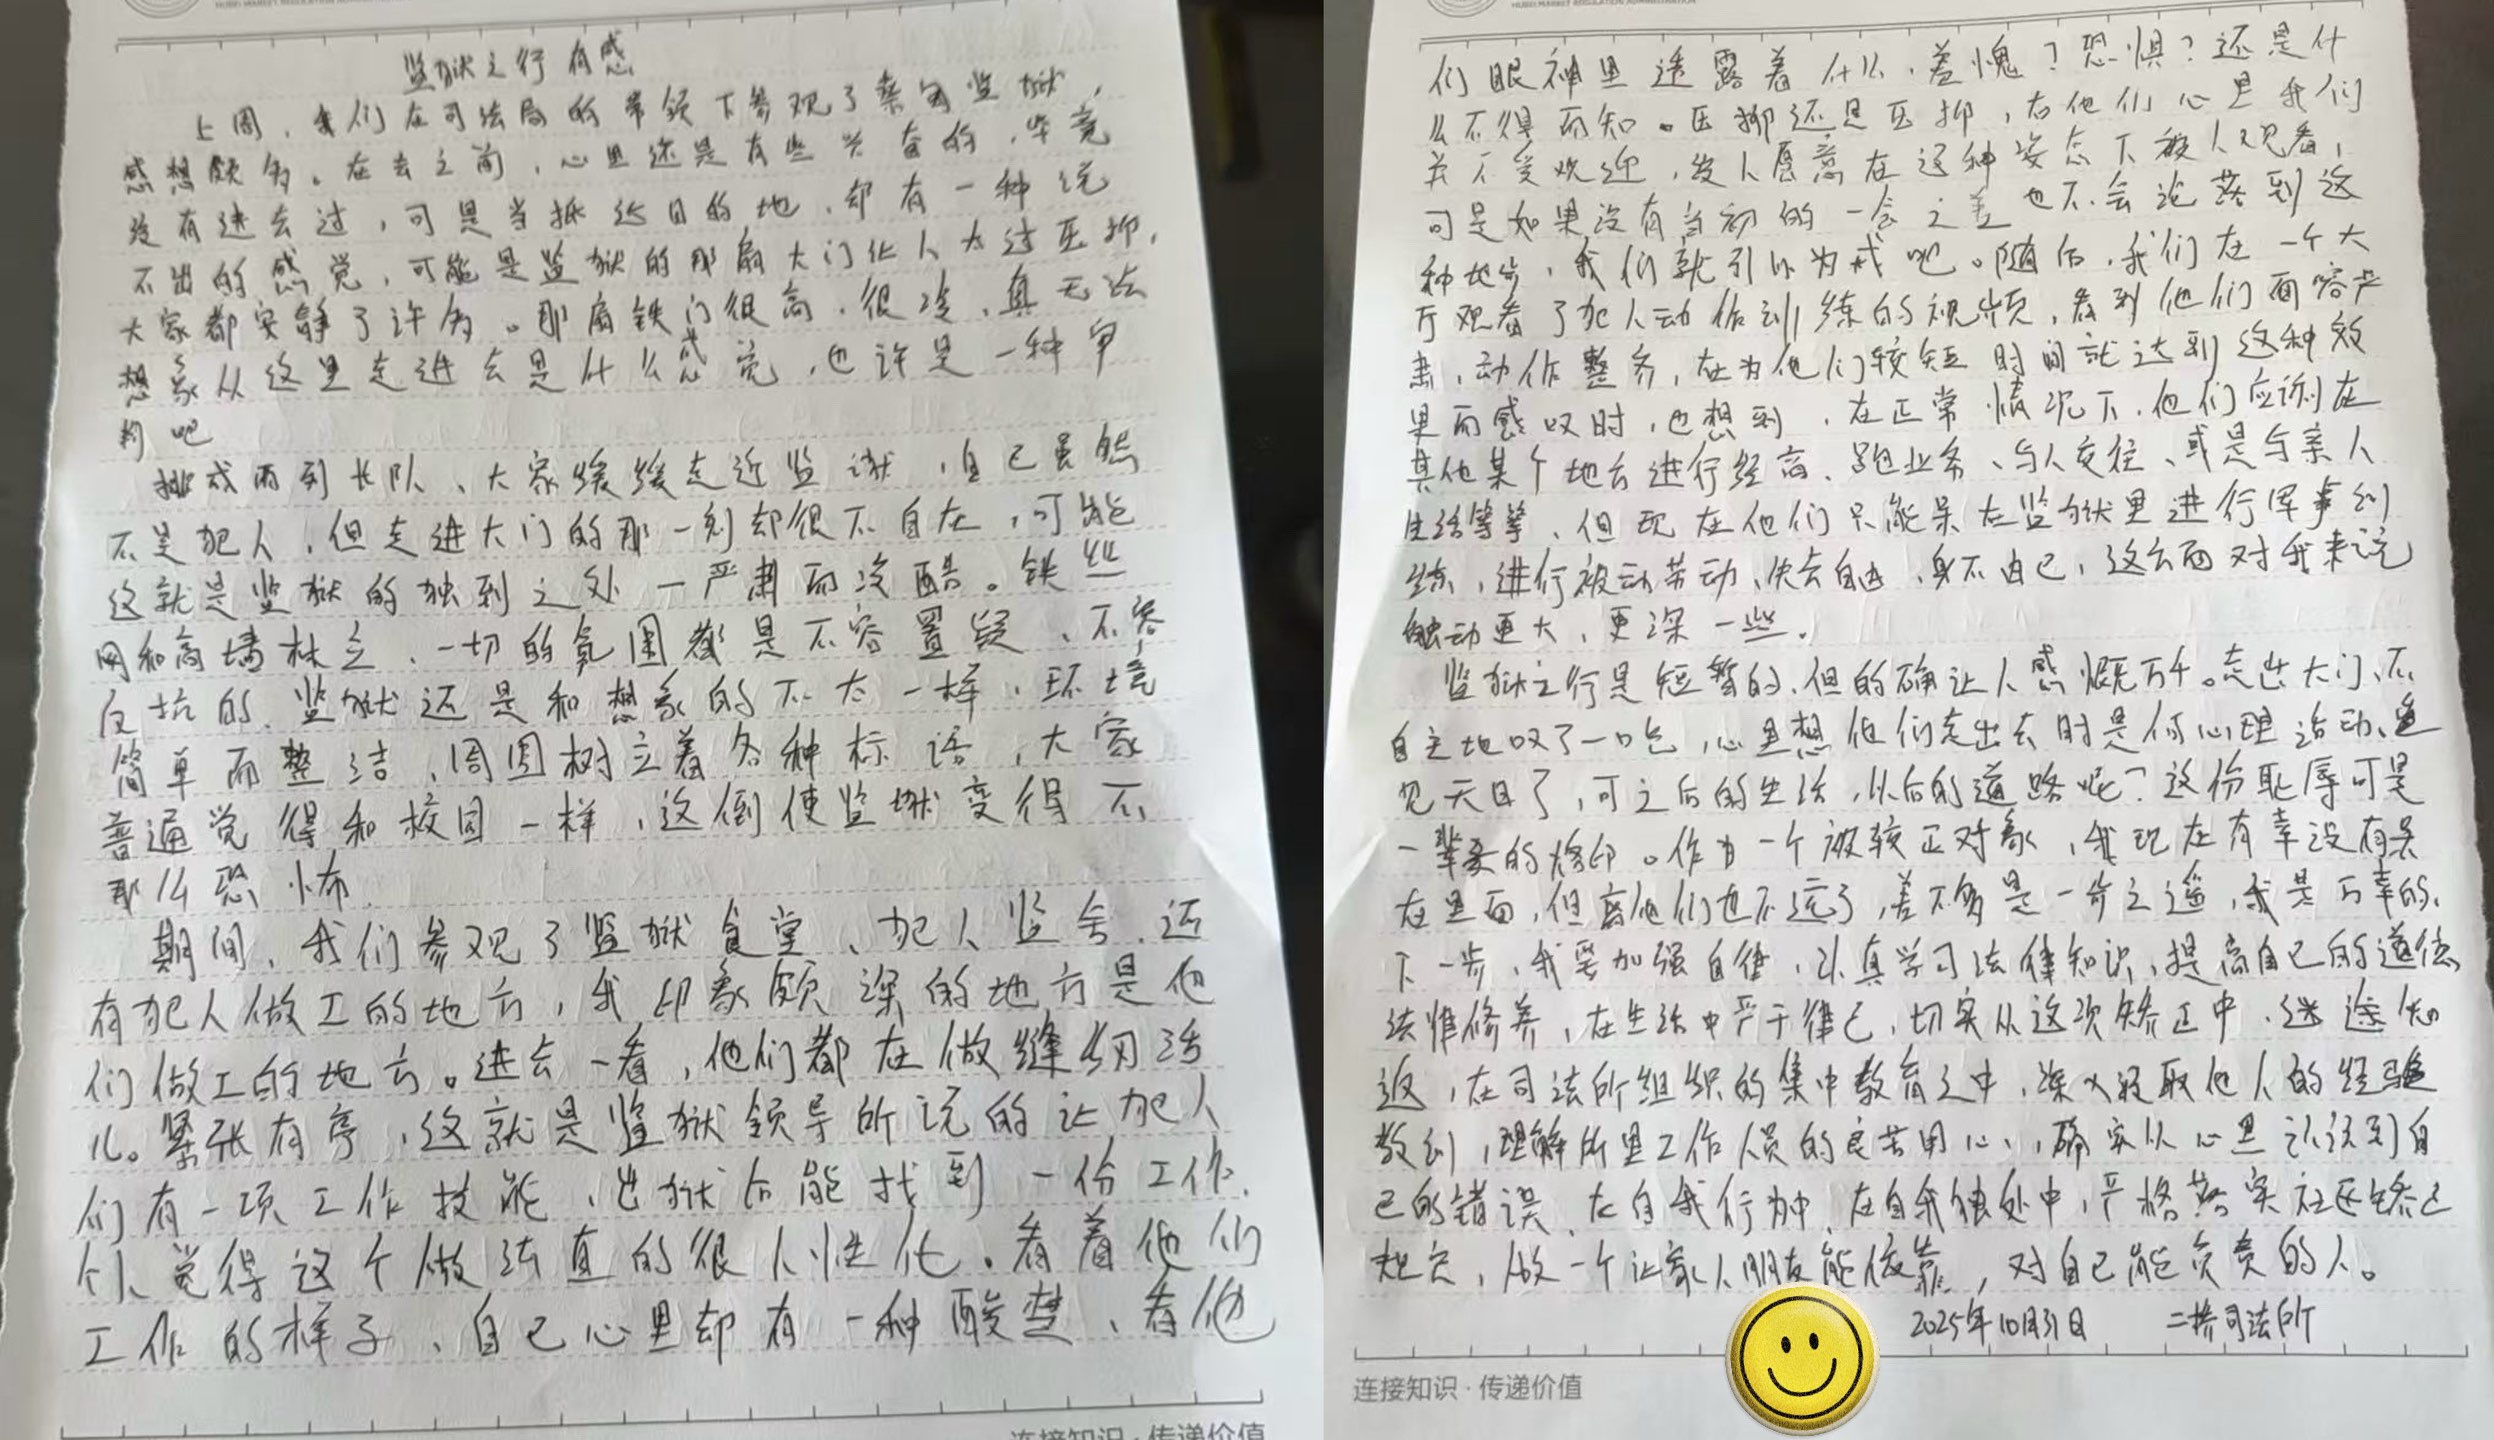 HUBEI MARKET REGULATION ADMINISTRATION
监狱之行有感
上周，我们在司法局的带领下参观了蔡甸监狱，
感想颇多。在去之前，心里还是有些兴奋的，毕竟
没有进去过，可是当抵达目的地，却有一种说
不出的感觉，可能是监狱的那扇大门让人太过压抑，
大家都安静了许多。那扇铁门很高、很冷，真无法
想象从这里走进去是什么感觉，也许是一种审
判吧
排成两列长队、大家缓缓走近监狱，自己虽然
不是犯人，但走进大门的那一刻却很不自在，可能
这就是监狱的独到之处一严肃而冷酷。铁丝
网和高墙林立、一切的氛围都是不容置疑、不容
反抗的、监狱还是和想象的不太一样、环境
简单而整洁、周围树立着各种标语，大家
普遍觉得和校园一样，这倒使监狱变得不
那么恐怖
期间，我们参观了监狱食堂、犯人监舍、还
有犯人做工的地方，我印象颇深的地方是他
们做工的地方。进去一看，他们都在做缝纫活
儿。紧张有序，这就是监狱领导所说的让犯人
们有一项工作技能，出狱后能找到一份工作、
个人觉得这个做法真的很人性化。看着他们
工作的样子、自己心里却有一种酸楚、看他
连接知识·传递价值
HUBEI MARKET REGULATION ADMINISTRATION
们眼神里透露着什么，羞愧？恐惧？还是什
么不得而知。压抑还是压抑，在他们心里我们
并不受欢迎，没人愿意在这种姿态下被人观看，
可是如果没有当初的一念之差也不会沦落到这
种地步，我们就引以为戒吧。随后，我们在一个大
厅观看了犯人动作训练的视频，看到他们面容严
肃，动作整齐，在为他们较短时间就达到这种效
果而感叹时，也想到，在正常情况下，他们应该在
其他某个地方进行经商、跑业务、与人交往、或是与亲人
生活等等，但现在他们只能呆在监狱里进行军事训
练，进行被动劳动、失去自由，身不由己，这方面对我来说
触动更大，更深一些。
监狱之行是短暂的，但的确让人感慨万千。走出大门，不
自主地叹了一口气，心里想他们走出去时是何心理活动、重
见天日了，可之后的生活，以后的道路呢？这份耻辱可是
一辈子的烙印。作为一个被矫正对象，我现在有幸没有呆
在里面，但离他们也不远了，差不多是一步之遥，我是万幸的、
下一步，我要加强自律，认真学习法律知识，提高自己的道德
法律修养，在生活中严于律己，切实从这项矫正中，迷途知
返，在司法所组织的集中教育之中，深入汲取他人的经验
教训，理解所里工作人员的良苦用心，确实从心里认识到自
己的错误、在自我行为中、在自我独处中，严格落实社区矫正
规定，做一个让家人朋友能依靠，对自己能负责的人。
2025年10月31日 二桥司法所
连接知识·传递价值